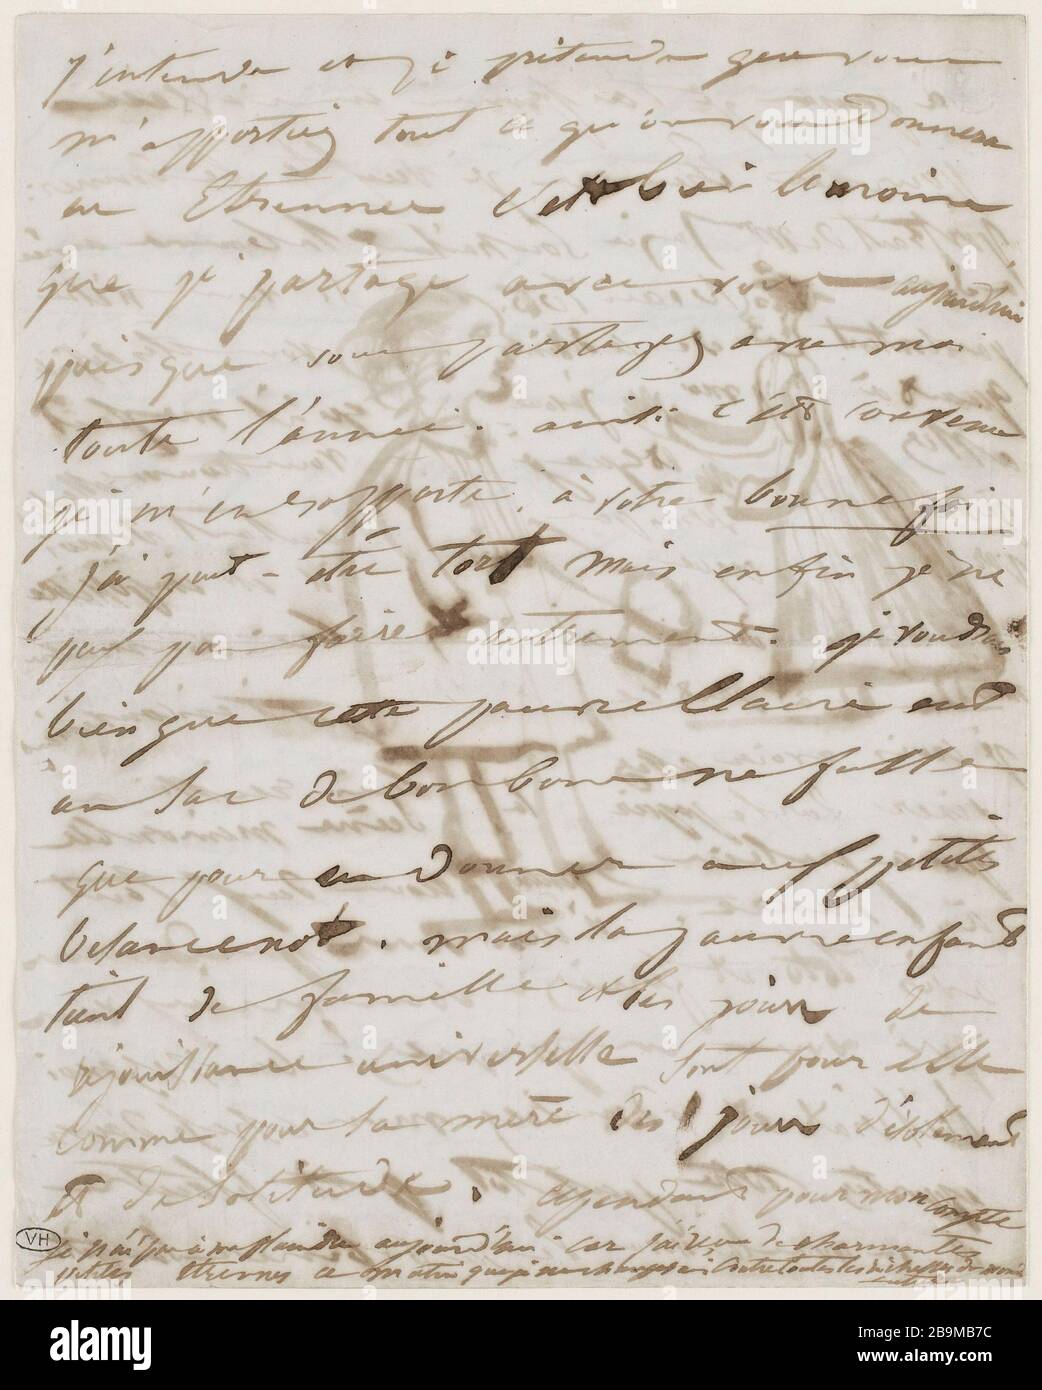 j'entends et je prétends que vous
m'apportiez tout ce qu'on vous donnera
en Etrennes c'est bien le moins
que je partage avec vous aujourd'hui
puisque vous partagez avec moi
toute l'année. ainsi c'est convenu
je m'en rapporte à votre bonne foi
j'ai peut-être tort mais enfin je ne
peux pas faire autrement. je voudrais
bien que cette pauvre Claire eut
un sac de bonbons ne fut-ce
que pour en donner aux petits
besancenot. mais la pauvre enfant
tant de famille et les jours de
réjouissance universelle sont pour elle
comme pour sa mère des jours d'isolement
et de solitude. cependant pour mon compte
je n'ai pas à me plaindre aujourd'hui car j'ai eu de charmantes
petites étrennes ce matin que je ne changerais contre toutes les richesses du monde
VH
alamy
Image ID: 2B9MB7C
www.alamy.com